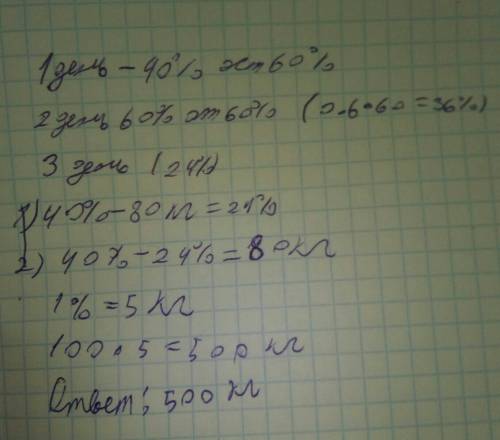 1 день – 40% ост 60%
2 день 60% от 60% (0.6•60=36%)
3 день (24%)
1) 40%–80кг=24%
2) 40%–24%=80кг
1%=5кг
100•5=500 кг
Ответ: 500 кг